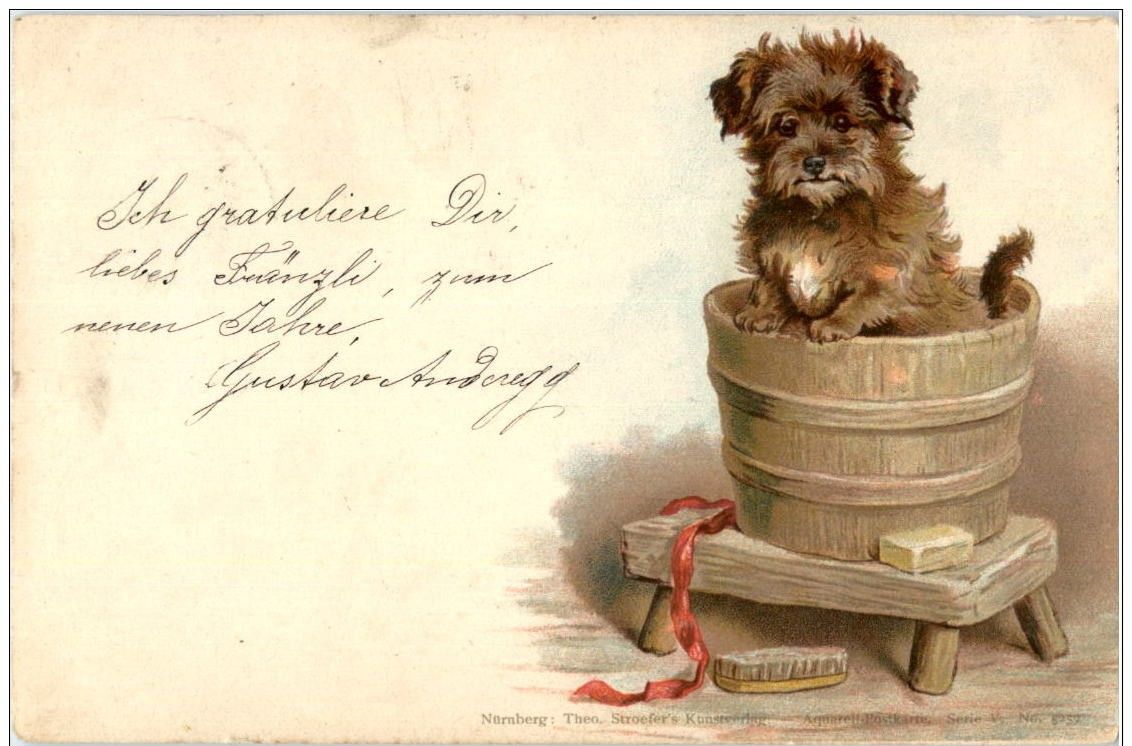 Ich gratuliere Dir,
liebes Fränzli, zum
neuen Jahre,
Gustav Anderegg
Nürnberg: Theo. Stroefer's Kunstverlag. — Aquarell-Postkarte. Serie V. No.